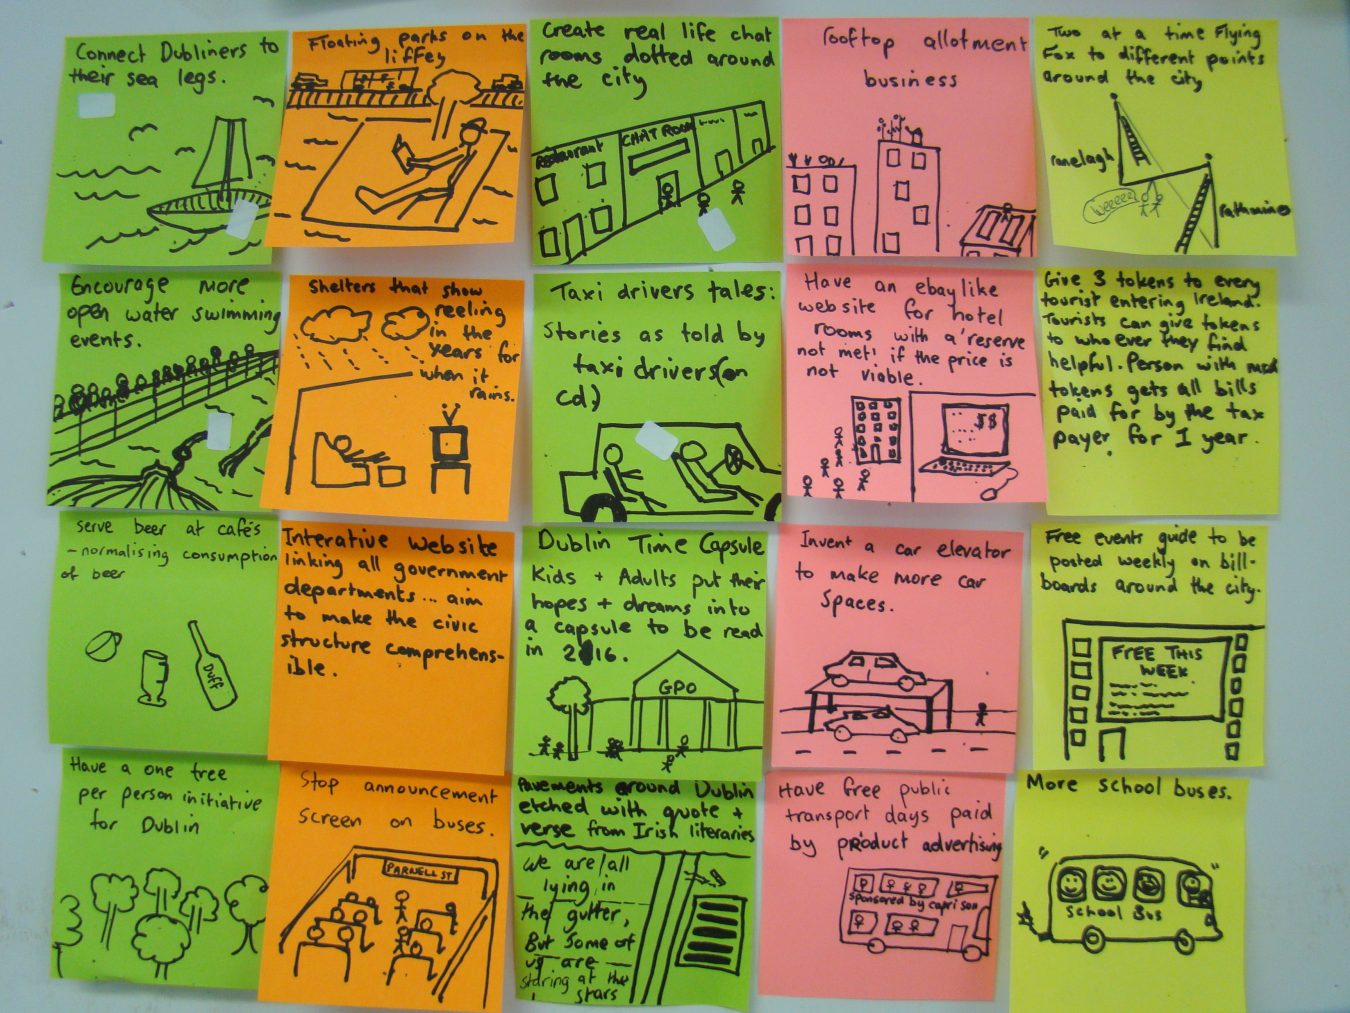 Connect Dubliners to
their sea legs.
Floating parks on the
liffey
Create real life chat
rooms dotted around
the city
Restaurant
CHAT ROOM
rooftop allotment
business
Two at a time Flying
Fox to different points
around the city
ranelagh
weeeee!
rathmines
Encourage more
open water swimming
events.
Shelters that show
reeling
in the
years for
when it
rains.
Taxi drivers tales:
Stories as told by
taxi drivers(on
cd)
Have an ebay like
website for hotel
rooms with a 'reserve
not met' if the price is
not viable.
$$
Give 3 tokens to every
tourist entering Ireland.
Tourists can give tokens
to who ever they find
helpful. Person with most
tokens gets all bills
paid for by the tax
payer for 1 year.
serve beer at cafés
- normalising consumption
of beer
Duff
Interative website
linking all government
departments... aim
to make the civic
structure comprehens-
ible.
Dublin Time Capsule
Kids + Adults put their
hopes + dreams into
a capsule to be read
in 2016.
GPO
Invent a car elevator
to make more car
spaces.
Free events guide to be
posted weekly on bill-
boards around the city.
FREE THIS
WEEK
Have a one tree
per person initiative
for Dublin
Stop announcement
screen on buses.
PARNELL ST
Pavements around Dublin
etched with quote +
verse from Irish literaries
We are all
lying in
the gutter,
But some of
us are
staring at the
stars
Have free public
transport days paid
by product advertising
sponsored by capri son
More school buses.
School Bus